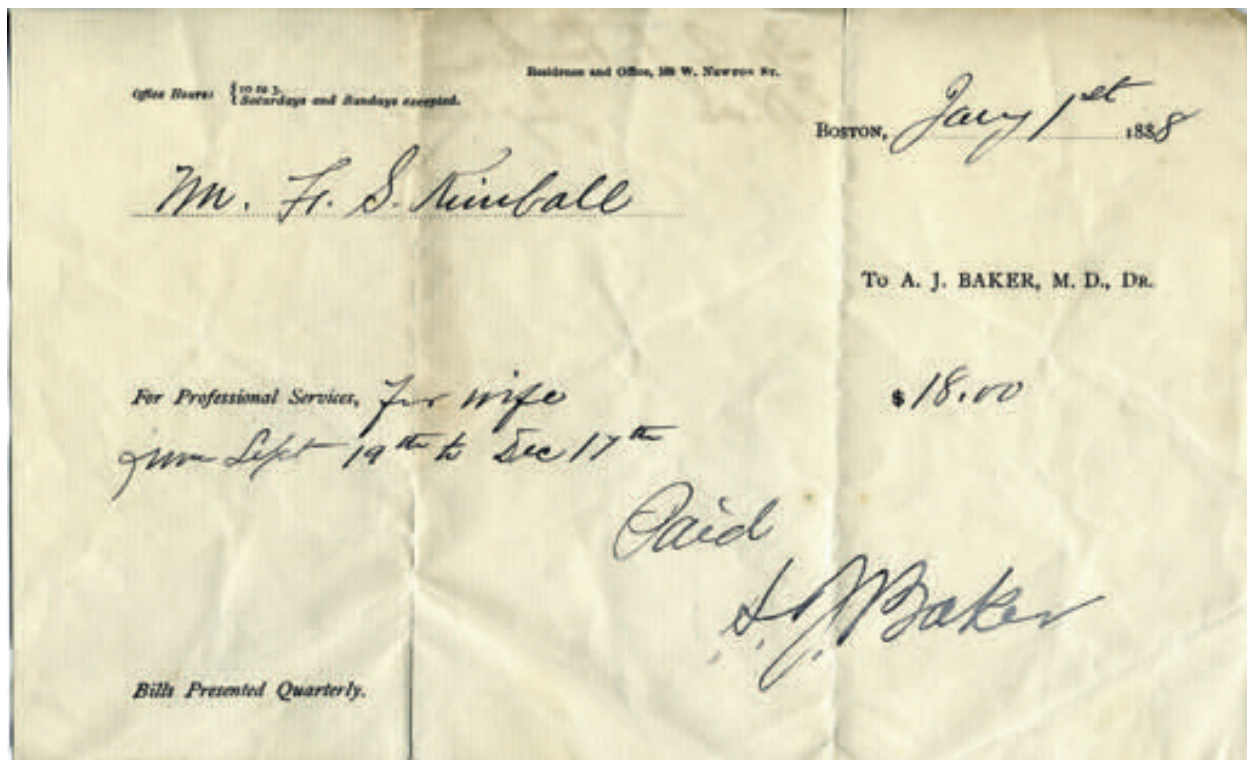 Residence and Office, W. Newton St.
Office Hours: { 10 to 3.
{ Saturdays and Sundays excepted.
Boston, Jany 1st 1888
Mr. S. Kimball
To A. J. BAKER, M. D., Dr.
For Professional Services, for wife $18.00
from Sept 19th to Dec 17th
Paid
A. J. Baker
Bills Presented Quarterly.